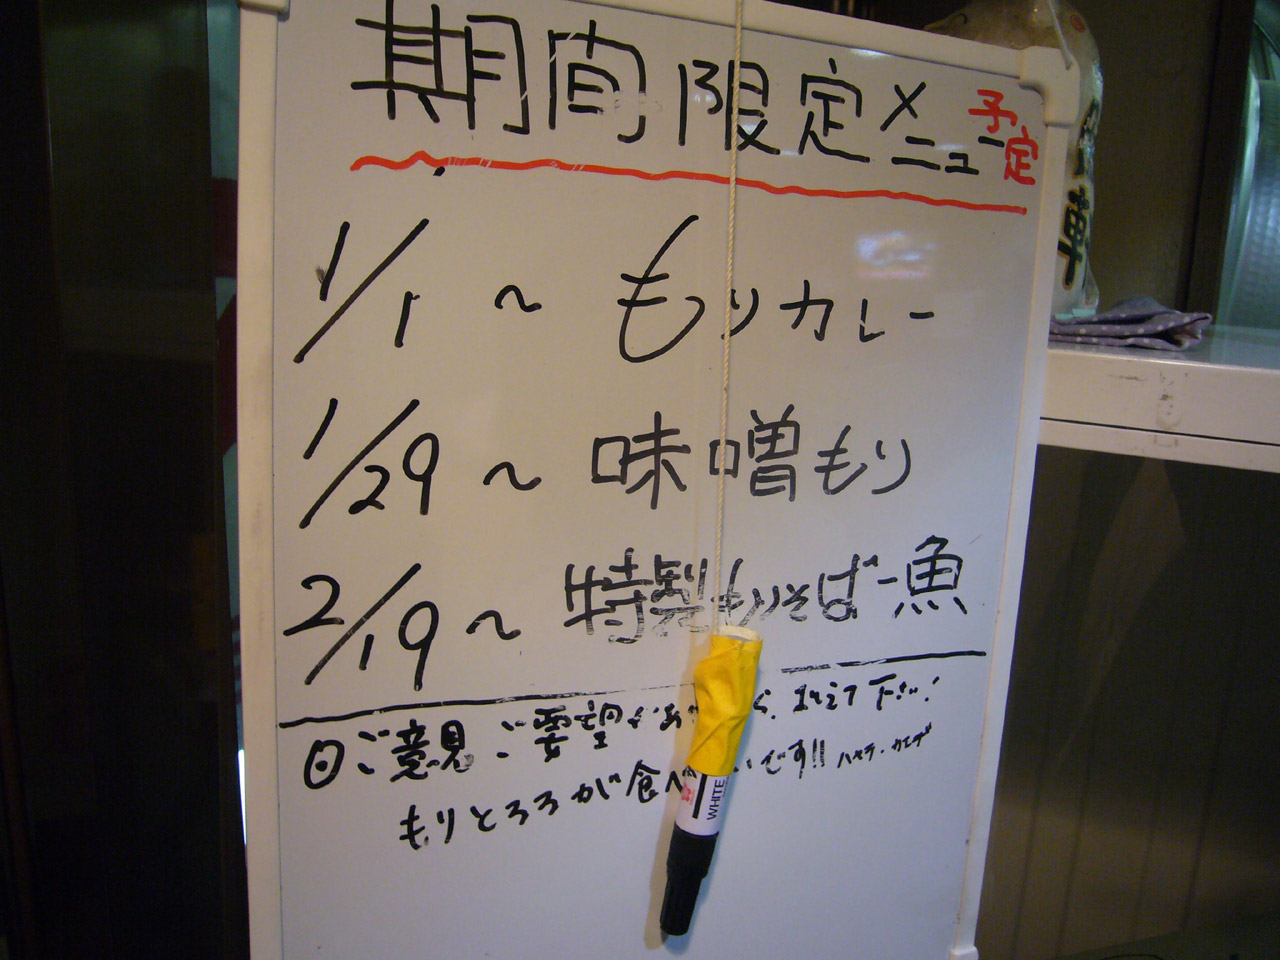 期間限定メニュー予定
1/1 ~ もりカレー
1/29 ~ 味噌もり
2/19 ~ 特製もりそば-魚
◎ご意見・ご要望 下さい!
もりとろろが食べ いです!! ハヤテ・カエデ
WHITE